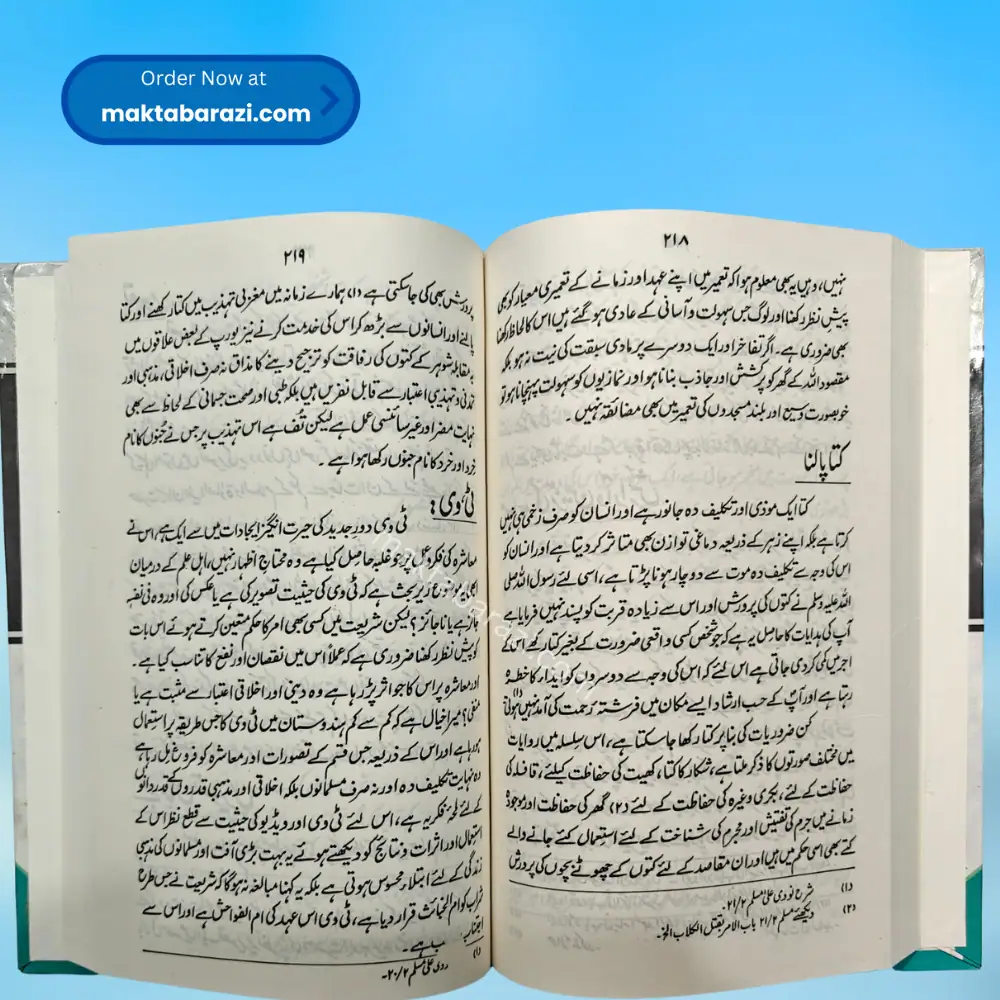 Order Now at
maktabarazi.com
۲۱۸
نہیں، وہیں یہ بھی معلوم ہوا کہ تعمیر میں اپنے عہد اور زمانے کے تعمیری معیار کو بھی
پیش نظر رکھنا اور لوگ جس سہولت و آسانی کے عادی ہو گئے ہیں اس کا لحاظ رکھنا
بھی ضروری ہے۔ اگر تفاخر اور ایک دوسرے پر مادی سبقت کی نیت نہ ہو بلکہ
مقصود اللہ کے گھر کو پرکشش اور جاذب بنانا ہو اور نمازیوں کو سہولت پہنچانا ہو تو
خوبصورت وسیع اور بلند مسجدوں کی تعمیر میں بھی مضائقہ نہیں۔
کتا پالنا
کتا ایک موذی اور تکلیف دہ جانور ہے اور انسان کو صرف زخمی ہی نہیں
کرتا ہے بلکہ اپنے زہر کے ذریعہ دماغی توازن بھی متاثر کر دیتا ہے اور انسان کو
اس کی وجہ سے تکلیف دہ موت سے دوچار ہونا پڑتا ہے، اسی لئے رسول اللہ صلی
اللہ علیہ وسلم نے کتوں کی پرورش اور اس سے زیادہ قربت کو پسند نہیں فرمایا ہے
آپ کی ہدایات کا حاصل یہ ہے کہ جو شخص کسی واقعی ضرورت کے بغیر کتا رکھے اس کے
اجر میں کمی کر دی جاتی ہے اس لئے کہ اس کی وجہ سے دوسروں کو ایذاء کا خطرہ
رہتا ہے اور آپ کے حسب ارشاد ایسے مکان میں فرشتۂ رحمت کی آمد نہیں ہوتی (۱)
کن ضروریات کی بنا پر کتا رکھا جا سکتا ہے، اس سلسلہ میں روایات
میں مختلف صورتوں کا ذکر ملتا ہے، شکار کا کتا، کھیت کی حفاظت کیلئے، قافلہ کی
حفاظت کے لئے، بکری وغیرہ کی حفاظت کے لئے (۲) گھر کی حفاظت اور موجودہ
زمانے میں جرم کی تفتیش اور مجرم کی شناخت کے لئے استعمال کئے جانے والے
کتے بھی اسی حکم میں ہیں اور ان مقاصد کے لئے کتوں کے چھوٹے بچوں کی پرورش
(۱) شرح نووی علی مسلم ۲۱/۲۔
(۲) دیکھئے مسلم ۲۱/۲ باب الامر بقتل الکلاب الخ۔
۲۱۹
پرورش بھی کی جا سکتی ہے (۱) ہمارے زمانہ میں مغربی تہذیب میں کتا رکھنے اور کتا
پالنے اور انسانوں سے بڑھ کر اس کی خدمت کرنے نیز یورپ کے بعض علاقوں میں
بہ مقابلہ شوہر کے کتوں کی رفاقت کو ترجیح دینے کا مذاق نہ صرف اخلاقی، مذہبی اور
تمدنی و تہذیبی اعتبار سے قابل نفریں ہیں بلکہ طبی اور صحت جسمانی کے لحاظ سے بھی
نہایت مضر اور غیر سائنسی عمل ہے لیکن تُف ہے اس تہذیب پر جس نے جُنوں کا نام
خِرد اور خرد کا نام جنوں رکھا ہوا ہے۔
ٹی وی:
ٹی وی دورِ جدید کی حیرت انگیز ایجادات میں سے ایک ہے، اس نے
معاشرہ کی فکر و عمل پر جو غلبہ حاصل کیا ہے وہ محتاج اظہار نہیں، اہل علم کے درمیان
ابھی یہ موضوع زیر بحث ہے کہ ٹی وی کی حیثیت تصویر کی ہے یا عکس کی اور وہ فی نفسہ
جائز ہے یا ناجائز؟ لیکن شریعت میں کسی بھی امر کا حکم متعین کرتے ہوئے اس بات
کو پیش نظر رکھنا ضروری ہے کہ عملاً اس میں نقصان اور نفع کا تناسب کیا ہے۔
اور معاشرہ پر اس کا جو اثر پڑ رہا ہے وہ دینی اور اخلاقی اعتبار سے مثبت ہے یا
منفی؟ میرا خیال ہے کہ کم سے کم ہندوستان میں ٹی وی کا جس طریقہ پر استعمال
ہو رہا ہے اور اس کے ذریعہ جس قسم کے تصورات اور معاشرہ کو فروغ مل رہا ہے
وہ نہایت تکلیف دہ اور نہ صرف مسلمانوں بلکہ اخلاقی اور مذہبی قدروں کے قدردانوں
کے لئے لمحۂ فکریہ ہے، اس لئے ٹی وی اور ویڈیو کی حیثیت سے قطع نظر اس کے
استعمال اور اثرات و نتائج کو دیکھتے ہوئے یہ بہت بڑی آفت اور مسلمانوں کی مذہبی
زندگی کے لئے ابتلاء محسوس ہوتی ہے بلکہ یہ کہنا مبالغہ نہ ہوگا کہ شریعت نے جس طرح
شراب کو ام الخبائث قرار دیا ہے، ٹی وی اس عہد کی ام الفواحش ہے اور اس سے
اجتناب ہے۔
(۱) نووی علی مسلم ۲۰/۲۔